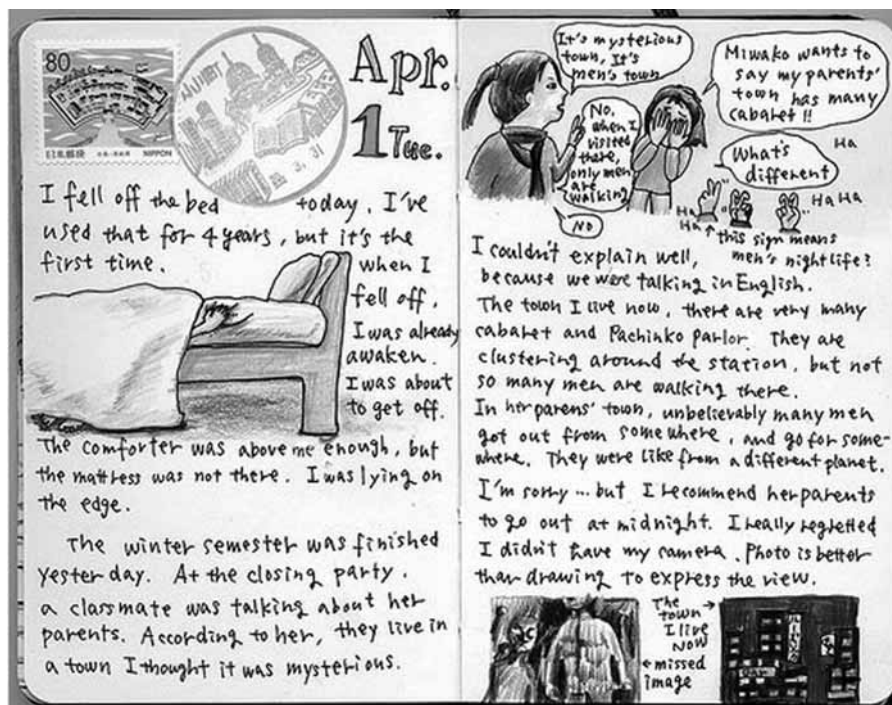 80
日本郵便
NIPPON
3.31
Apr.
1 Tue.
I fell off the bed today. I've
used that for 4 years, but it's the
first time.
when I
fell off,
I was already
awaken.
I was about
to get off.
The comforter was above me enough, but
the mattress was not there. I was lying on
the edge.
The winter semester was finished
yesterday. At the closing party,
a classmate was talking about her
parents. According to her, they live in
a town I thought it was mysterious.
It's mysterious
town, It's
men's town
No,
when I
visited
there,
only men
are
walking
No
Miwako wants to
say my parents'
town has many
cabaret !!
Ha
What's
different
Ha Ha
Ha
Ha ↑ this sign means
men's nightlife?
I couldn't explain well,
because we were talking in English.
The town I live now, there are very many
cabaret and Pachinko parlor. They are
clustering around the station, but not
so many men are walking there.
In her parens' town, unbelievably many men
got out from somewhere, and go for some-
where. They were like from a different planet.
I'm sorry ... but I recommend her parents
to go out at midnight. I really regretted
I didn't have my camera. Photo is better
than drawing to express the view.
The →
town
I live
Now
← missed
image